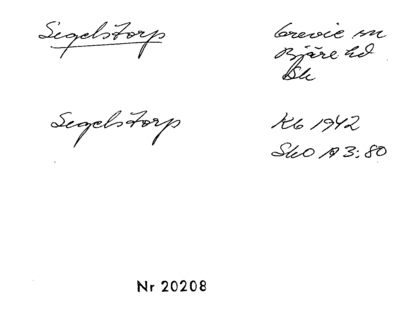 Segelstorp
Grevie sn
Bjäre hd
Sk
Segelstorp
Kb 1942
SkO A 3:80
Nr 20208